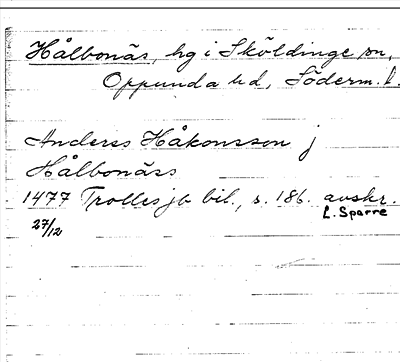 Hålbonäs, hg i Sköldinge sn,
Oppunda hd, Söderm. l.
Anders Håkonsson j
Hålbonäss
1477 Trolles jb bil., s. 186. avskr.
27/12 L. Sparre